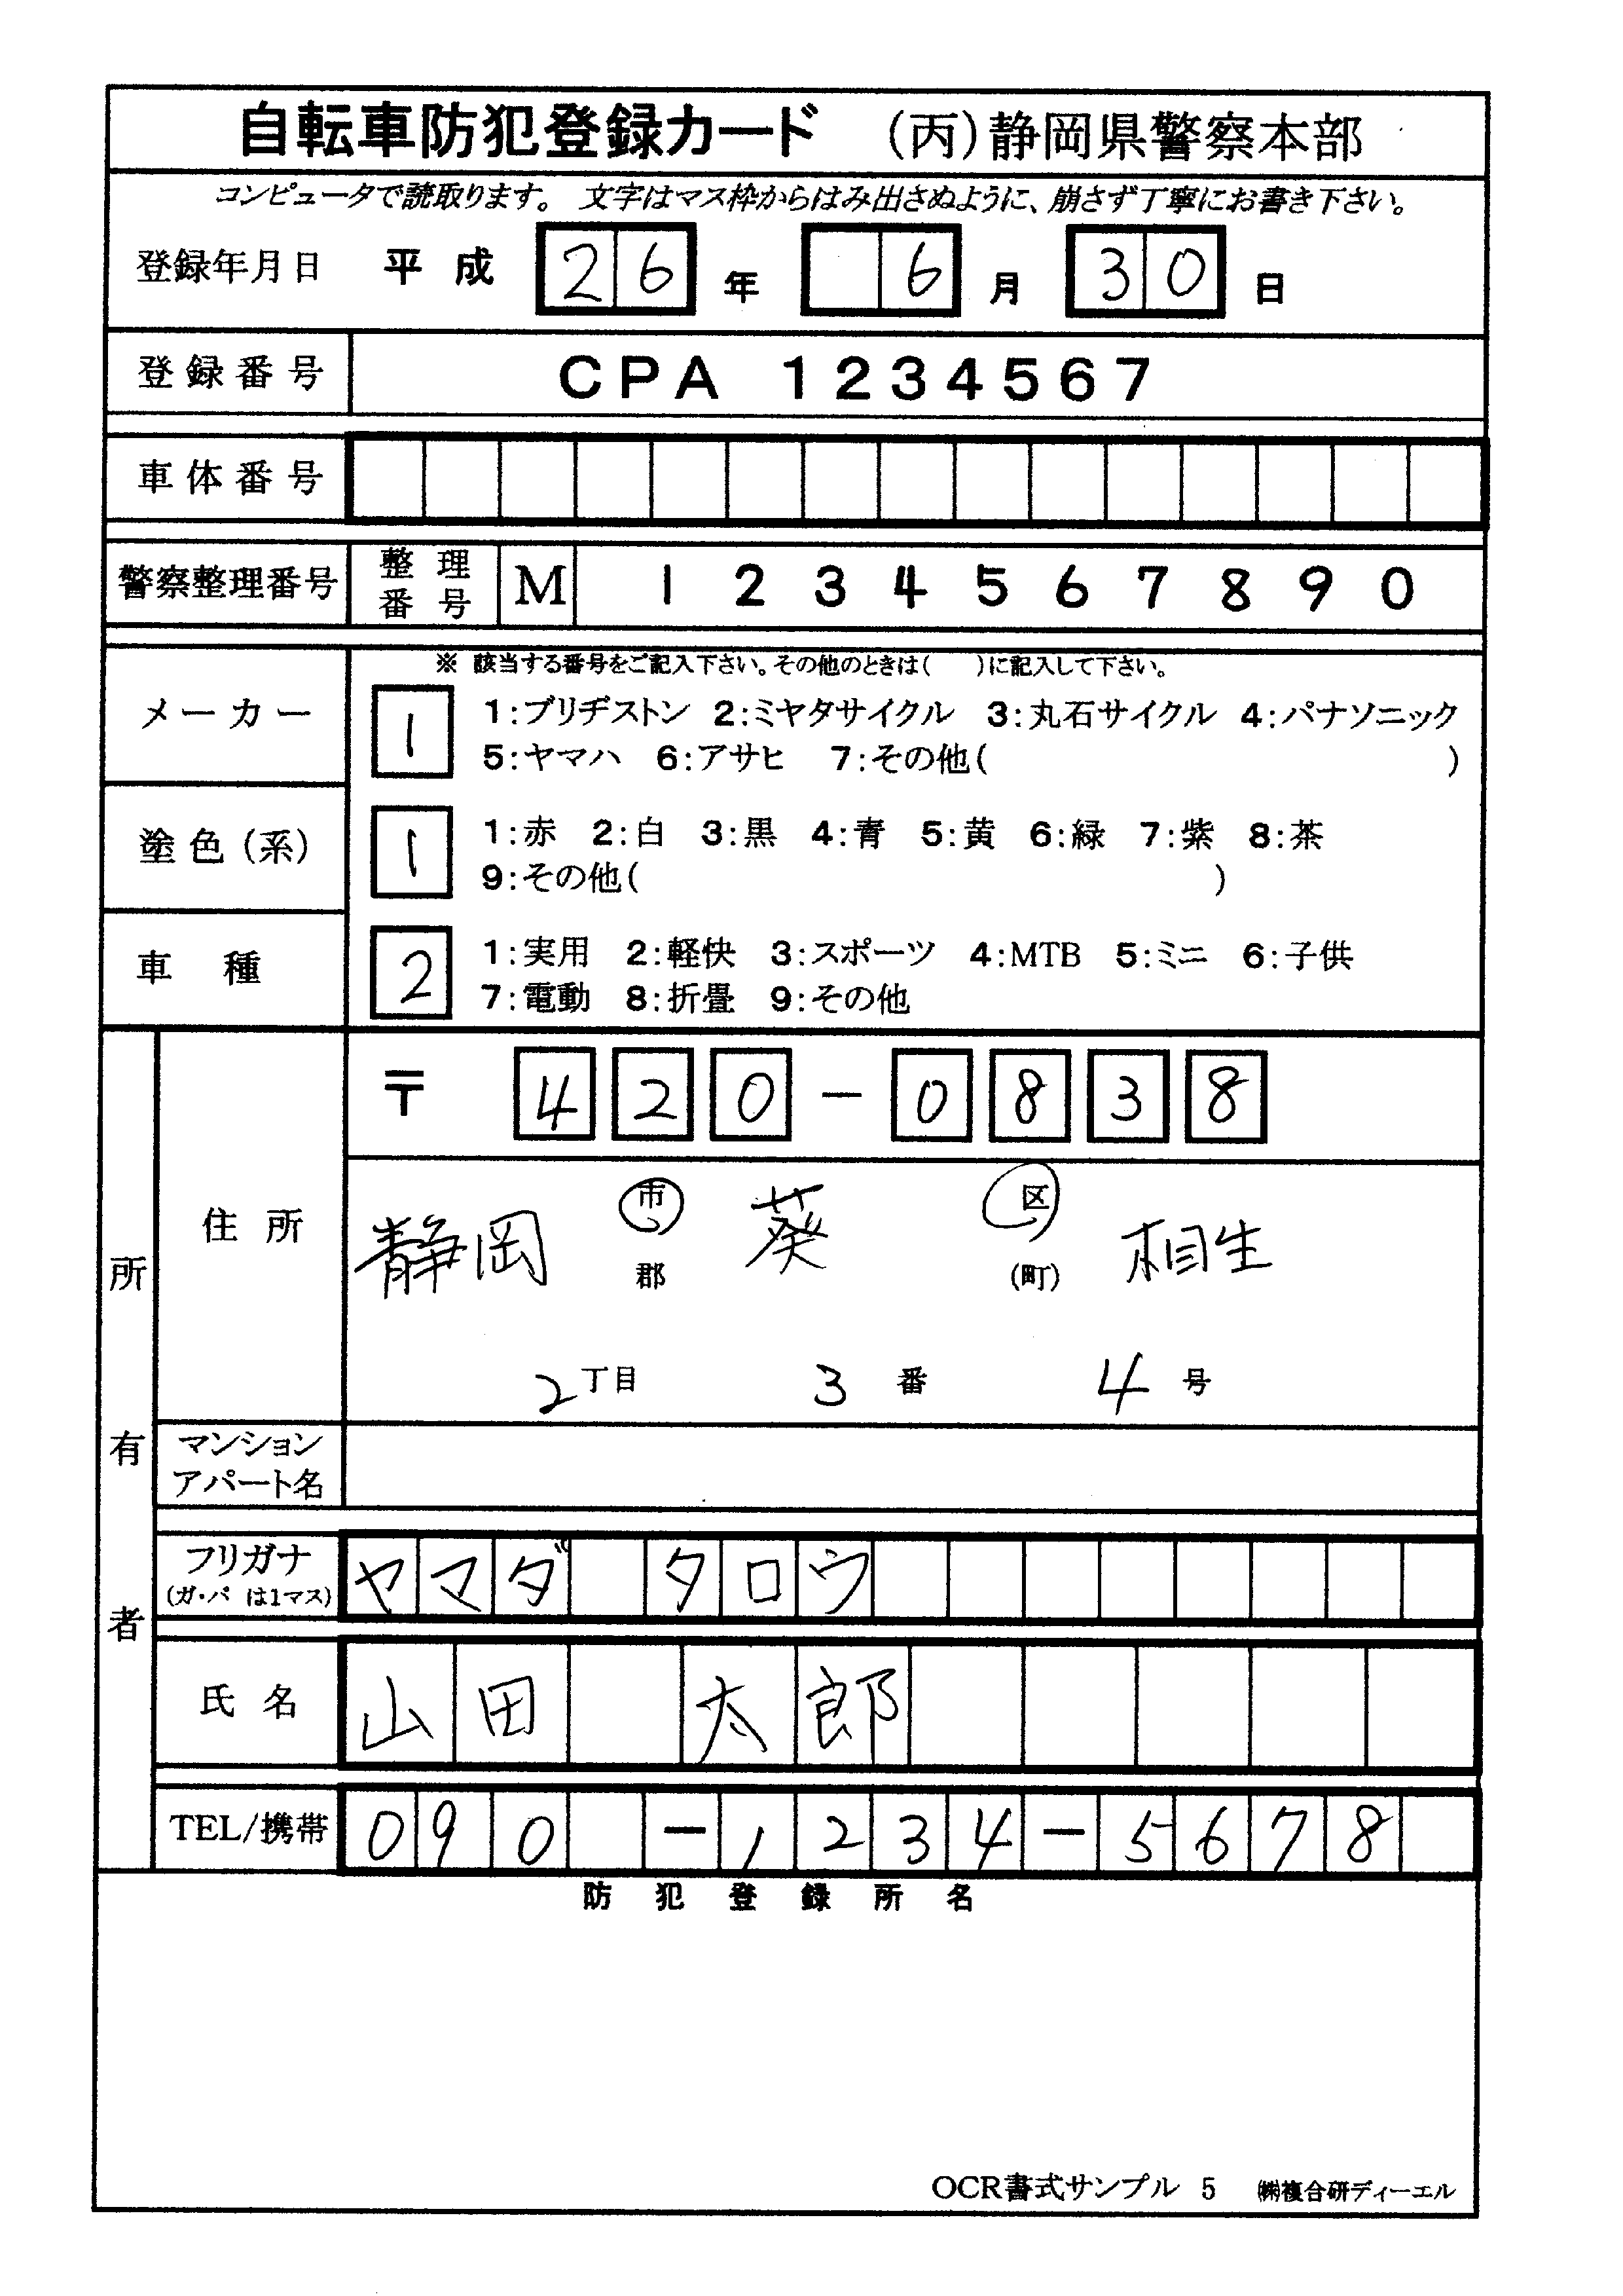 自転車防犯登録カード (丙)静岡県警察本部
コンピュータで読取ります。 文字はマス枠からはみ出さぬように、崩さず丁寧にお書き下さい。
登録年月日 平成 26 年 6 月 30 日
登録番号 CPA 1234567
車体番号
警察整理番号 整理番号 M 1234567890
※ 該当する番号をご記入下さい。その他のときは( )に記入して下さい。
メーカー 1 1:ブリヂストン 2:ミヤタサイクル 3:丸石サイクル 4:パナソニック
5:ヤマハ 6:アサヒ 7:その他( )
塗色(系) 1 1:赤 2:白 3:黒 4:青 5:黄 6:緑 7:紫 8:茶
9:その他( )
車種 2 1:実用 2:軽快 3:スポーツ 4:MTB 5:ミニ 6:子供
7:電動 8:折畳 9:その他
所有者
住所 〒 420-0838
静岡 市 郡 葵 区 (町) 相生
2 丁目 3 番 4 号
マンション
アパート名
フリガナ ヤマダ タロウ
(ガ・パ は1マス)
氏名 山田 太郎
TEL/携帯 090 -1234-5678
防犯登録所名
OCR書式サンプル 5 ㈱複合研ディーエル